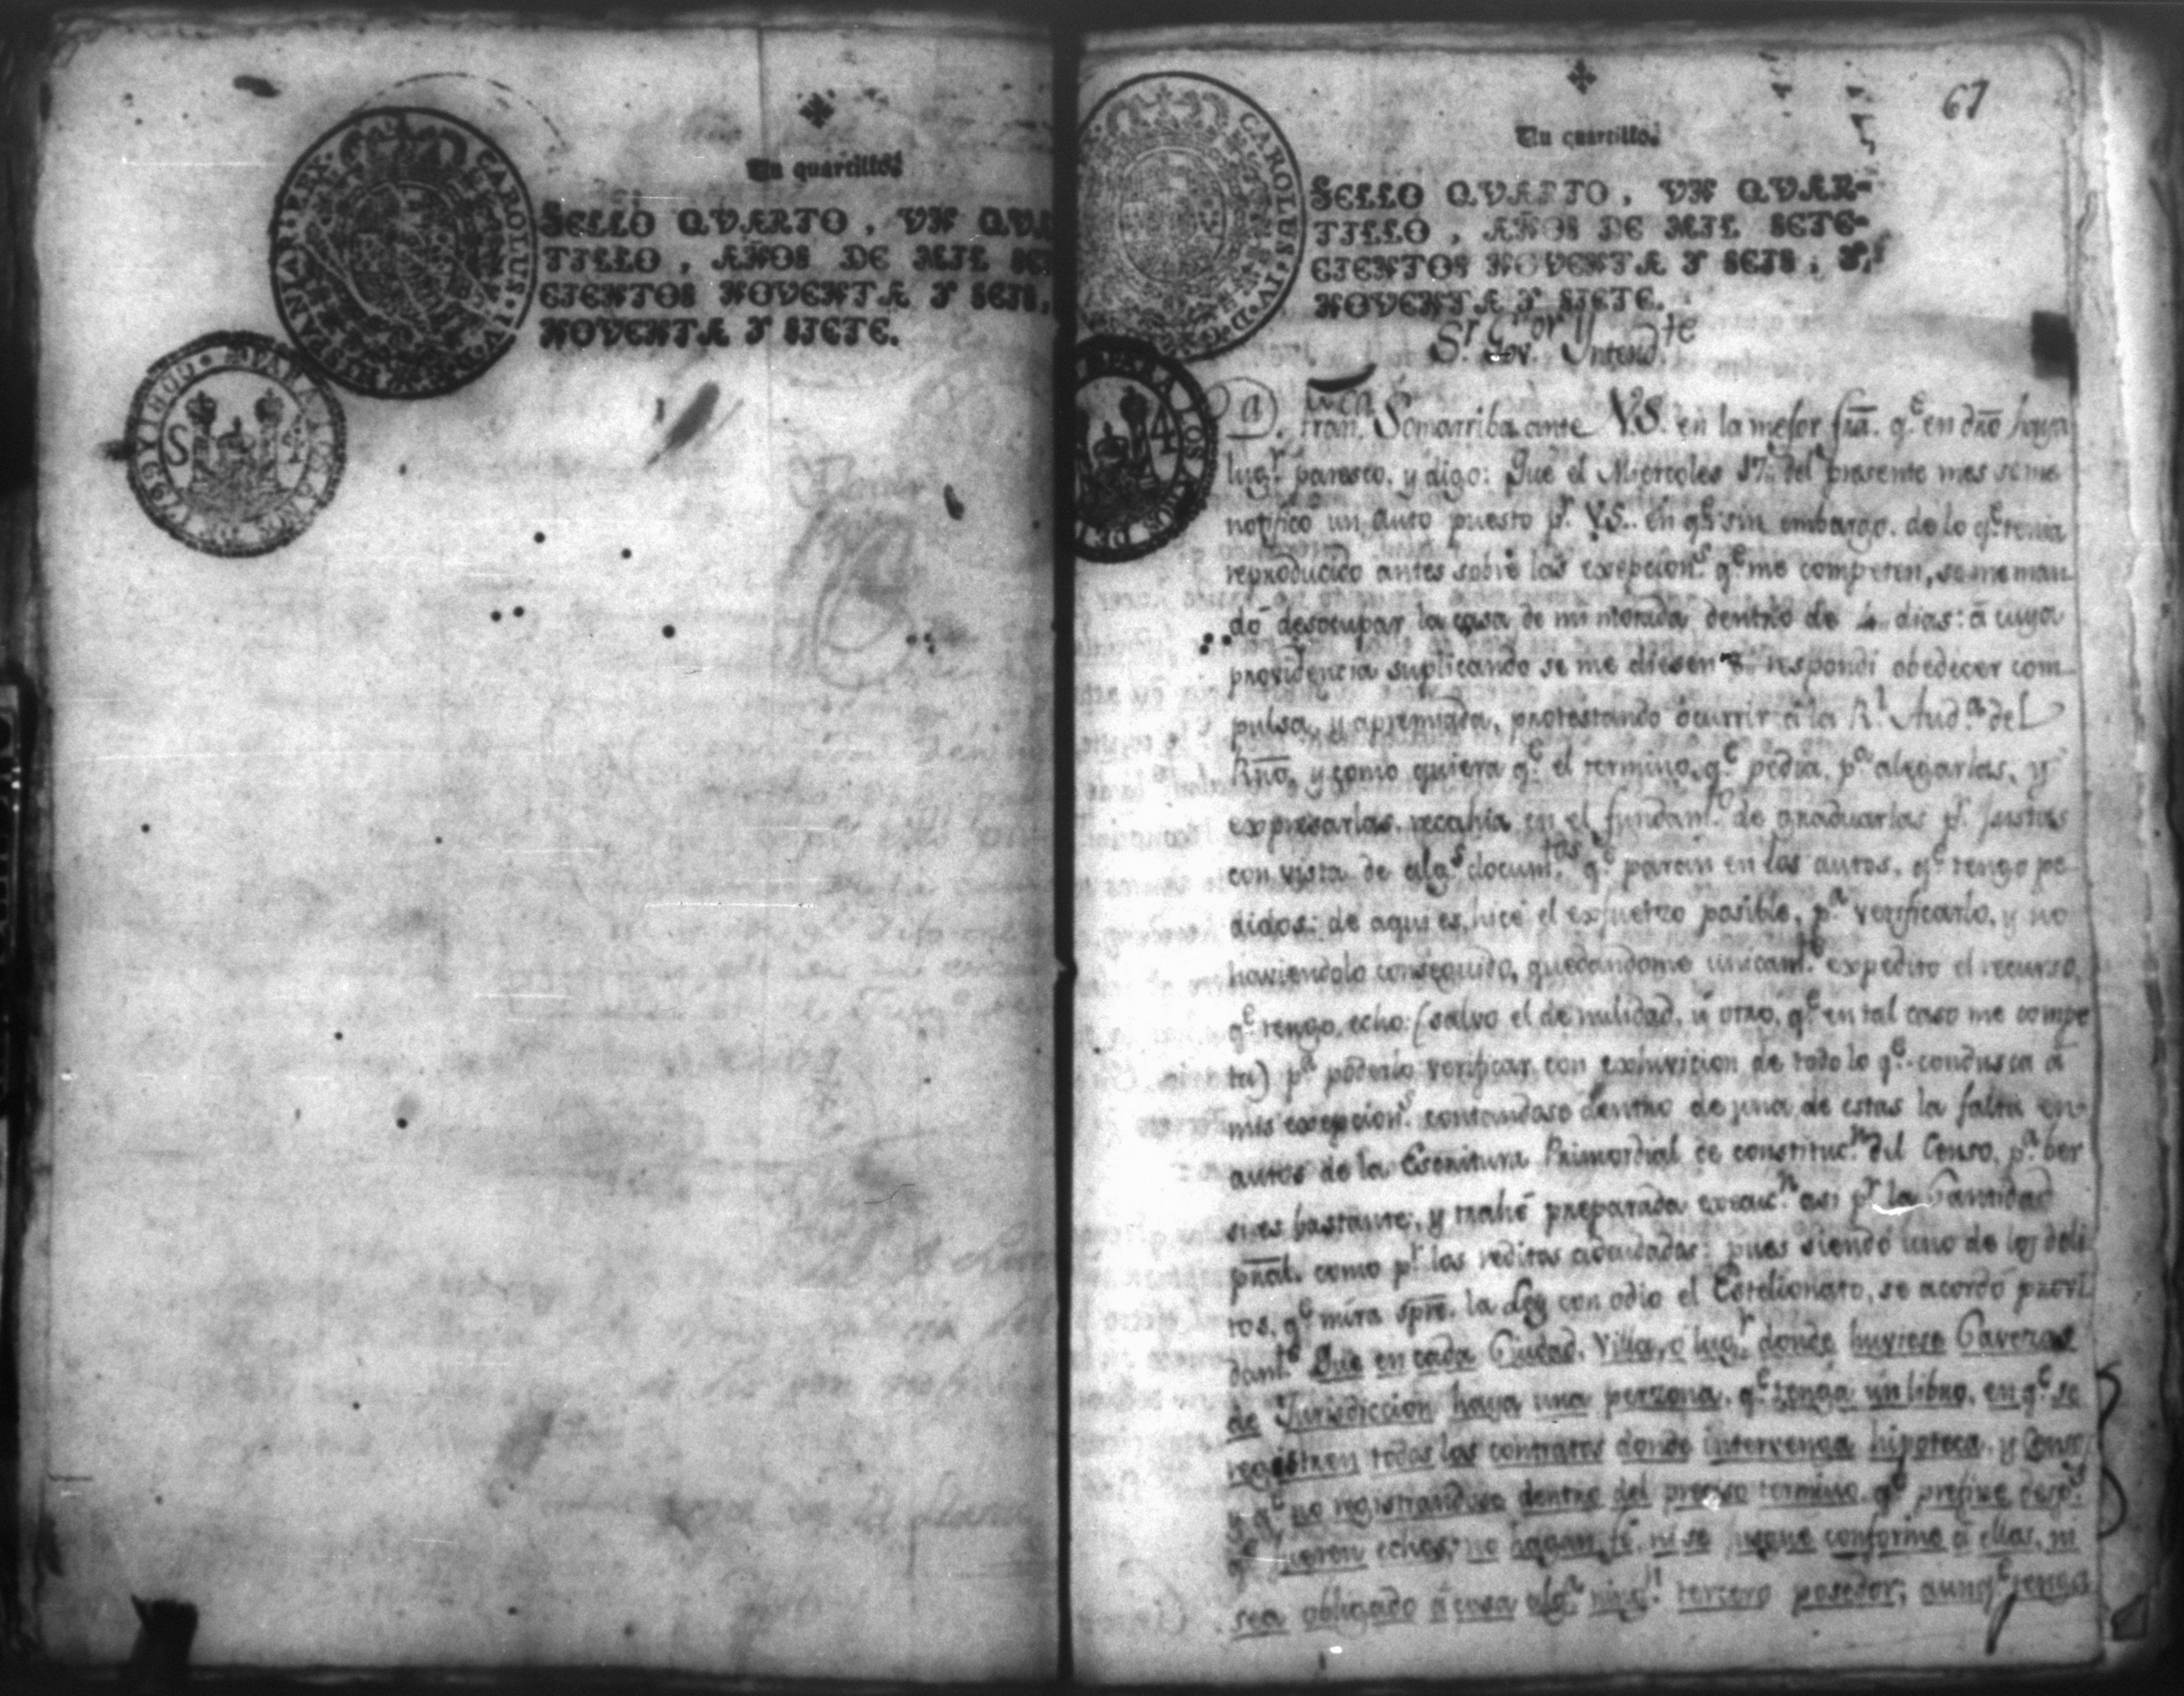 Un quartillo.
SELLO QVARTO, VN QVA
TILLO, AÑOS DE MIL SET
CIENTOS NOVENTA Y SEIS,
NOVENTA Y SIETE.
CAROLUS·IV·D·G·HISPANIAR·REX
S 4
67
Un quartillo.
SELLO QVARTO, VN QVAR-
TILLO, AÑOS DE MIL SETE-
CIENTOS NOVENTA Y SEIS, Y
NOVENTA Y SIETE.
CAROLUS·IV·D·G·
4
Sr. Gov.or Yntend.te
Da. Fran.ca Somarriba ante V.S. en la mejor fra. q.e en dro haya
lug.r paresco, y digo: Que el Miercoles 17. del presente mes se me
notificó un auto puesto p.r V.S. en q.e sin embargo de lo q.e tenia
reproducido antes sobre las exsepcion.s q.e me competen, se me man
dó desocupar la casa de mi morada dentro de 4 dias: á cuya
providencia suplicando se me diesen respondi obedecer com
pulsa, y apremiada, protestando ocurrir á la R.l Aud.a del
Rno, y como quiera q.e el termino, q.e pedia, p.a alegarlas, y
expresarlas, recahia en el fundam.to de graduarlas p.r justas
con vista de alg.s docum.tos q.e paren en los autos, q.e tengo pe
didos: de aqui es, hice el esfuerzo posible, p.a verificarlo, y no
haviendolo conseguido, quedandome unicam.te expedito el recurso,
q.e tengo echo: (salvo el de nulidad, ú otro, q.e en tal caso me compe
ta) p.a poderlo verificar con exhivicion de todo lo q.e condusca á
mis exsepcion.s contandose dentro de una de estas la falta en
autos de la Escritura Primordial de constituc.n del Censo, p.a ber
si es bastante, y trahe preparada execuc.n asi p.r la Cantidad
pral. como p.r los reditos adeudados: pues siendo uno de los deli
tos, q.e mira spre. la Ley con odio el Estelionato, se acordó provi
dam.te Que en cada Ciudad, Villa, ó lug.r donde huviere Caveza
de Jurisdiccion haya una perzona, q.e tenga un libro, en q.e se
registren todos los contratos donde intervenga hipoteca, y Censo
y q.e no registrandose dentro del preciso termino, q.e prefine desp.s
q.e fueren echos, no hagan fé, ni se jusgue conforme á ellas, ni
sea obligado á cosa alg.a ning.n tercero posedor; aunq.e tenga